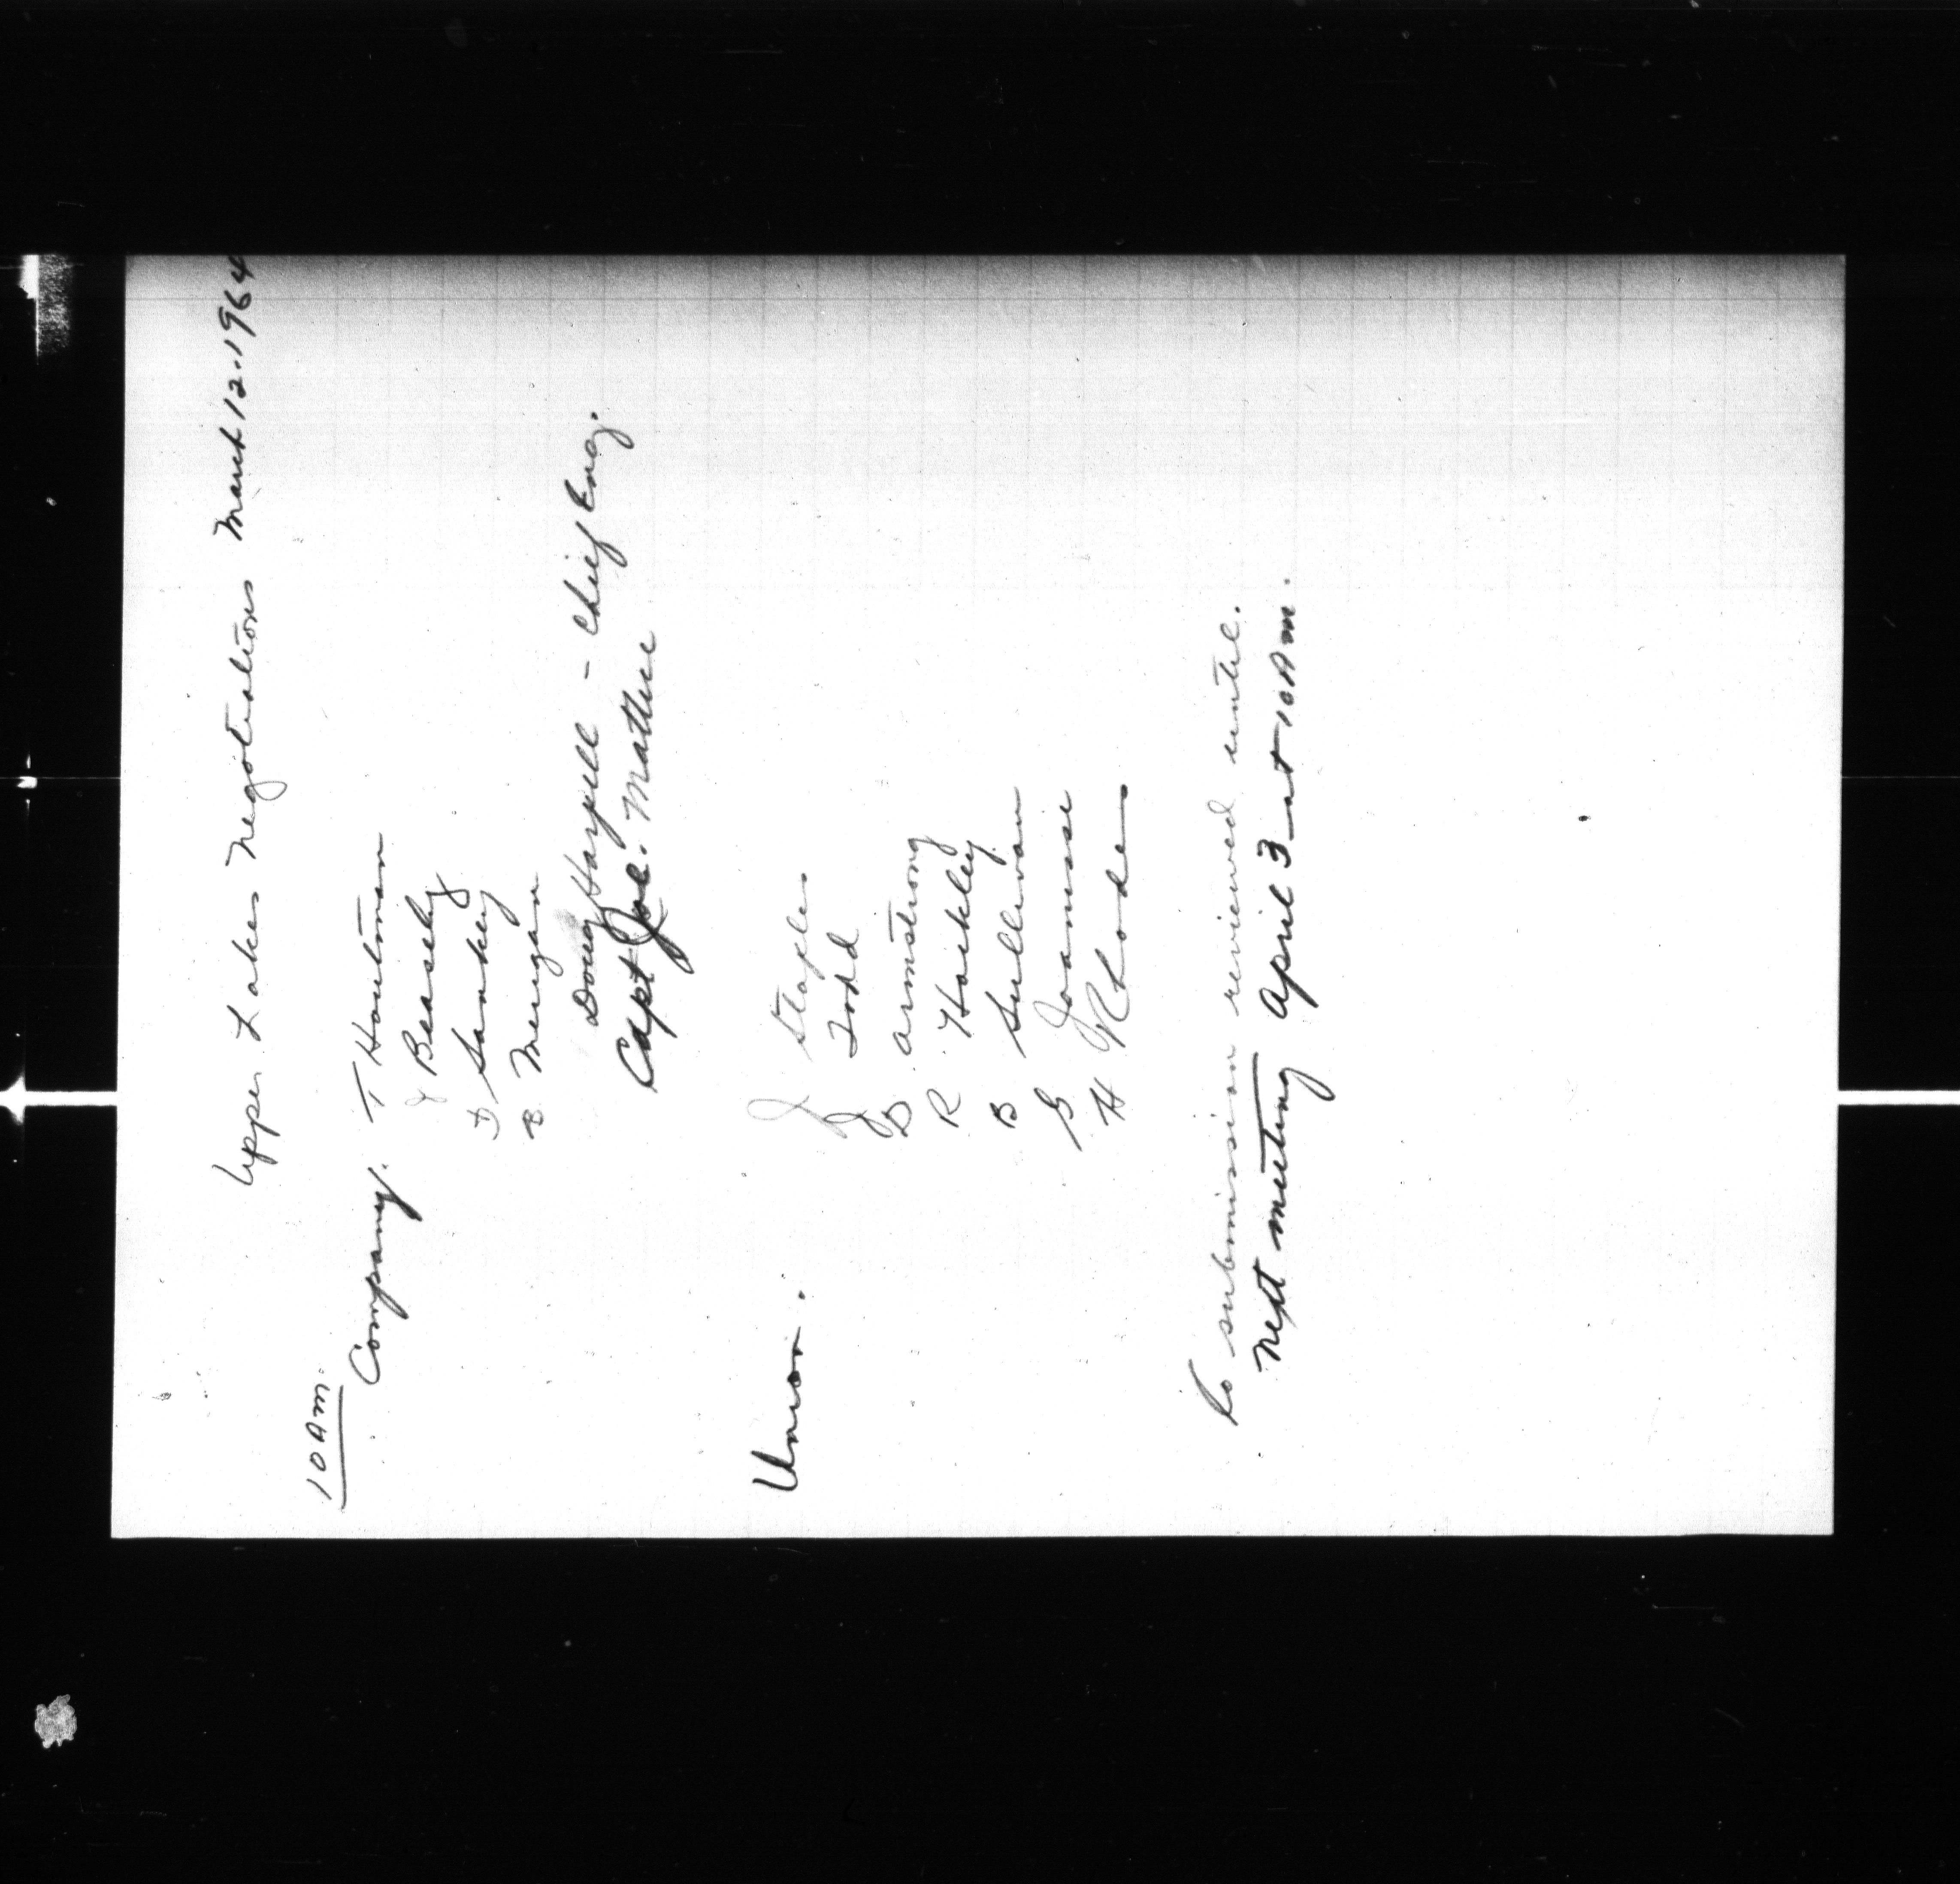 Upper Lakes Negotiations March 12-1964
10 AM.
Company. T Houtman
J Beasely
D Sankey
B Merigan
Doug Harpell - Chief Eng.
Capt Joe. Matthie
Union. J Staples
J Todd
D Armstrong
R. Hockley
B Sullivan
G Joanisse
H Rhode
Co submission reviewed until.
Next meeting April 3 - at 10 AM.